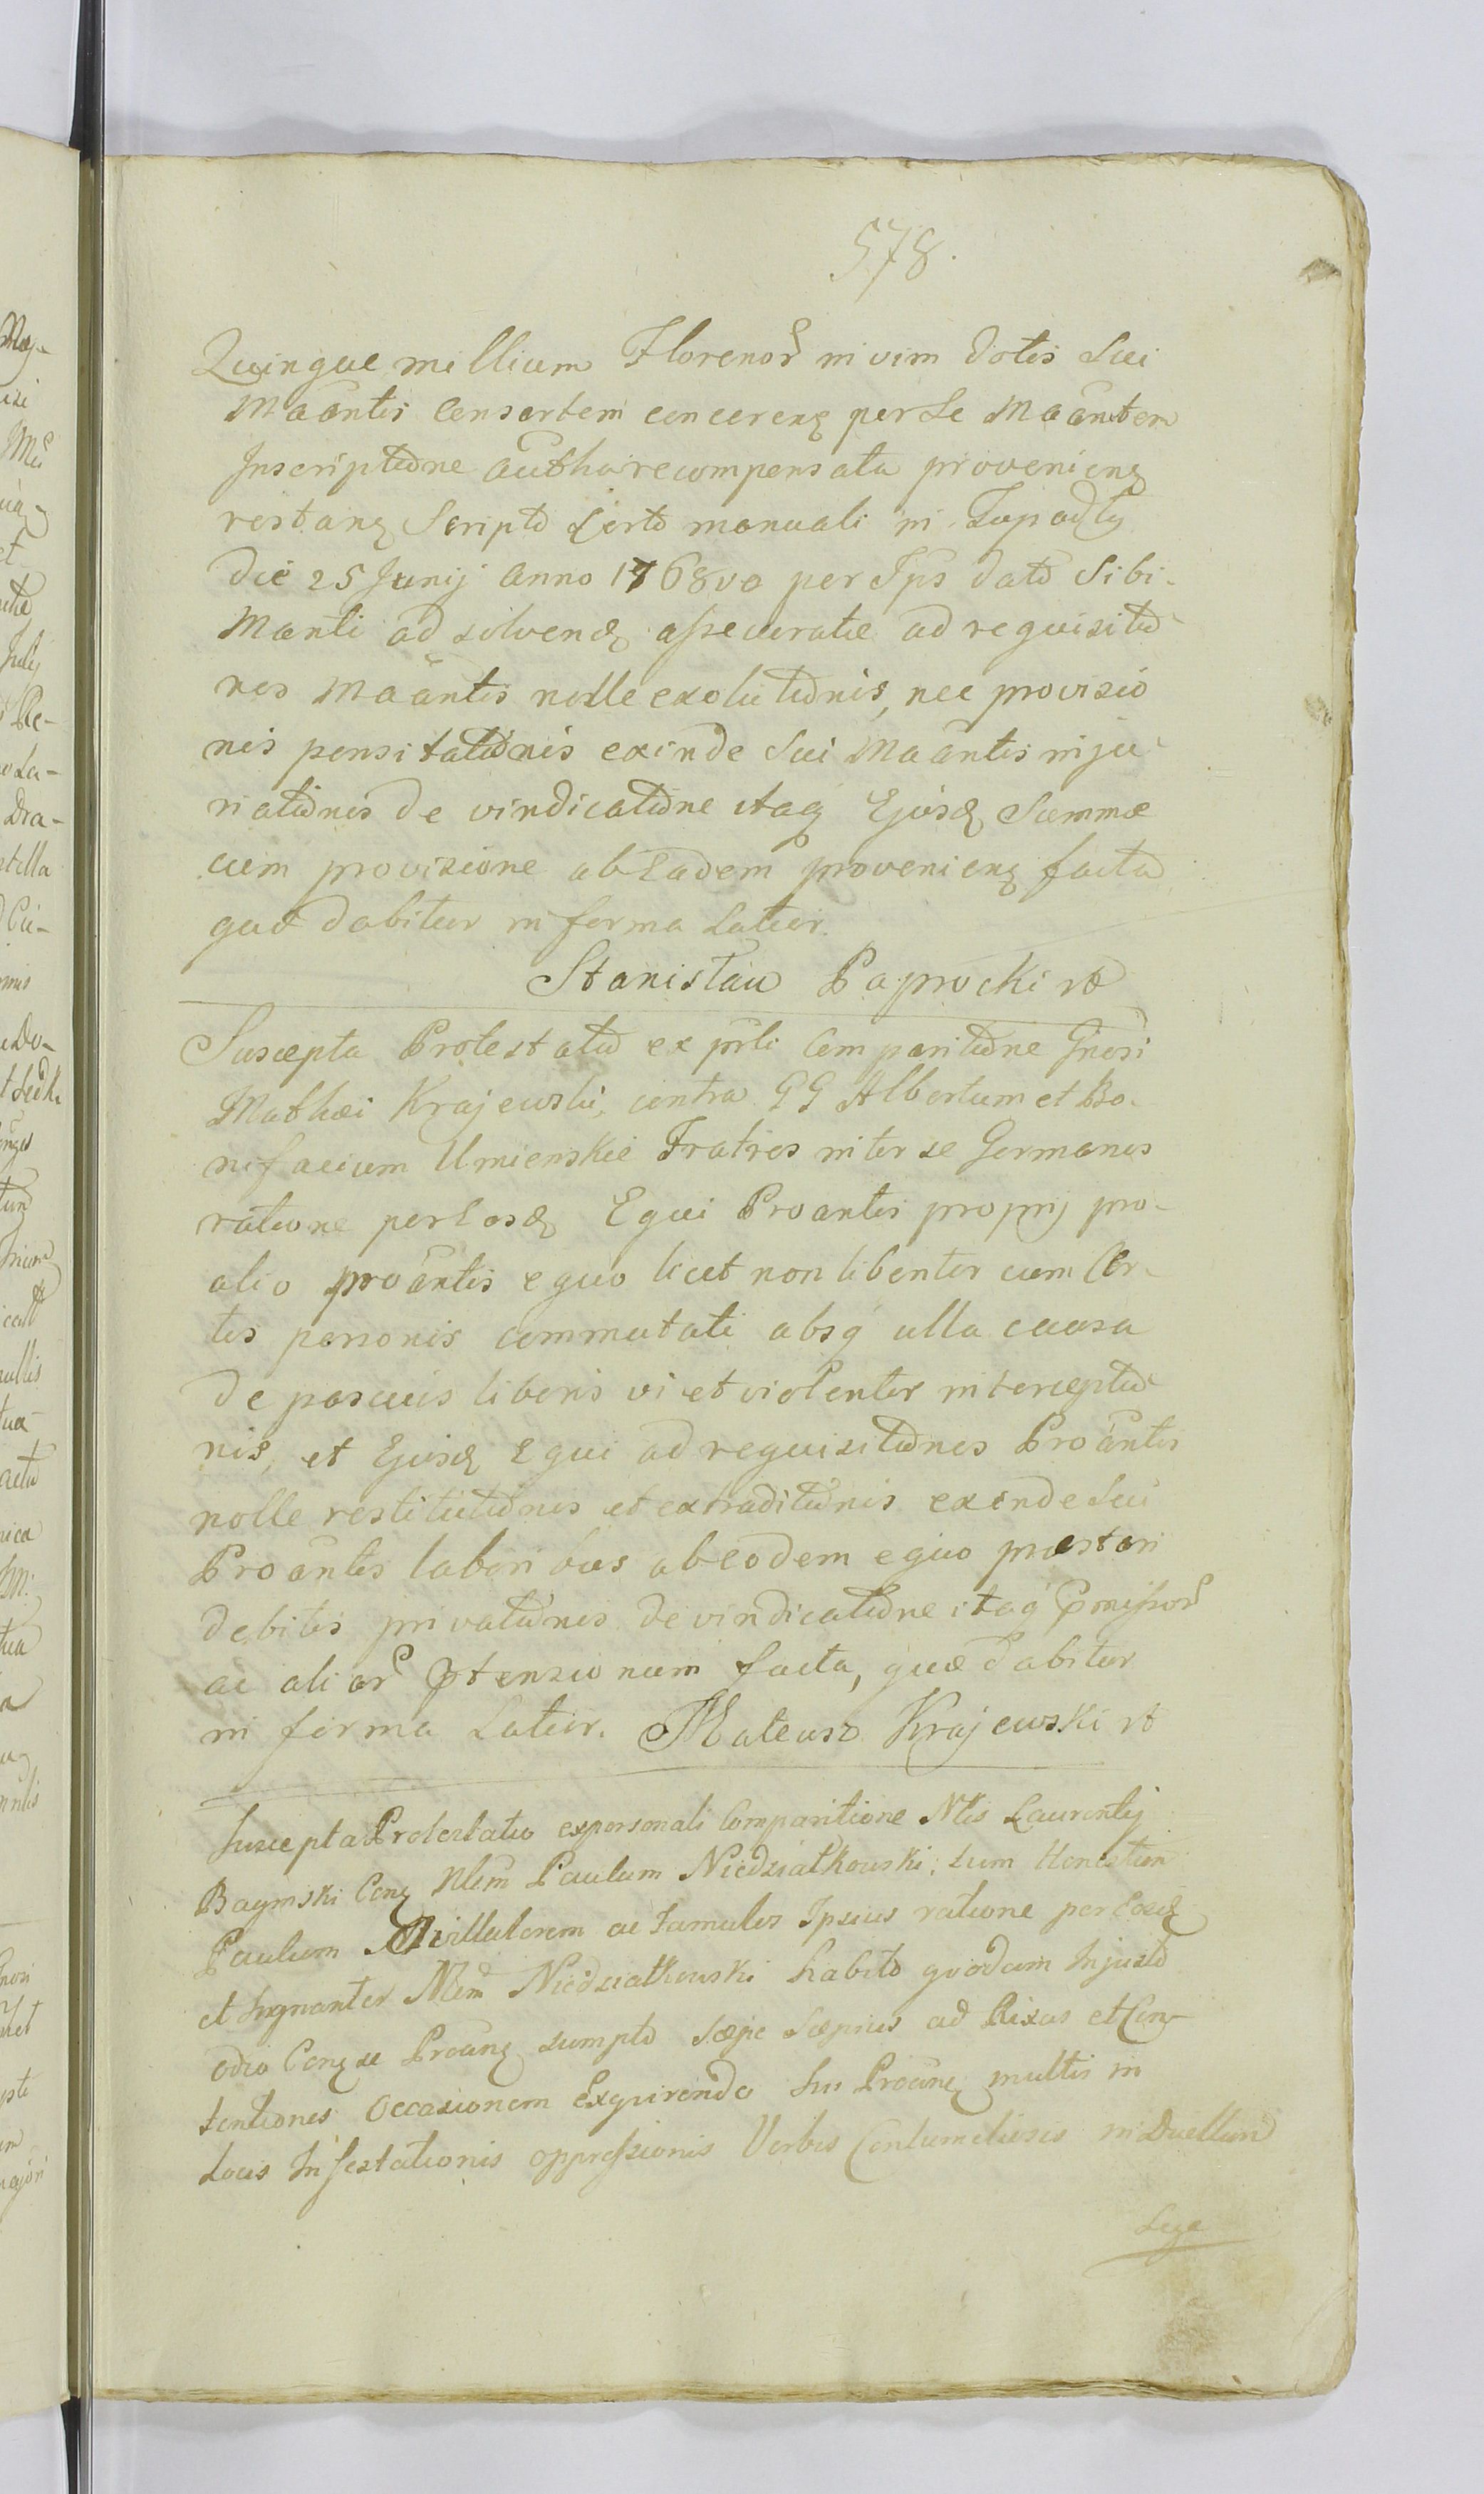 578.
Quinque millium Florenor̃ in vim dotis Sui
Maãntis Consortem concerenꝫ per Se Maãntem
Inscriptiõne autha recompensata provenienꝫ
restanꝫ Scripto Certo manuali in
die 25 Junij Anno 1768vo per Ips dato Sibi
Manti ad solvendꝫ assecuratæ ad requisitiõ
nes Maãntis nolle exolutiõnis, nec provisio
nis pensitatiõnis exinde Sui Maãntis inju
riatiõnis de vindicatiõne itaqꝫ Ejusdꝫ Summæ
cum provisione ab Eadem provenienꝫ facta
quæ dabitur in forma Latior.
Stanisław Paprocki
Suscepta Protestatio ex prli Comparitiõne Gnosi
Mathæi Krajewski, contra GG Albertum et Bo-
nifacium Umienskie Fratres inter se Germanos
ratione per Eosdꝫ Equi Proantis proprij pro
alio proãntis equo licet non libenter cum Cer-
tis personis commutati absq̃ ulla causa
de pascuis liberis vi et violenter interceptiõ
nis, et Ejusdꝫ Equi ad requisitiõnes Proãntis
nolle restitutiõnis et extraditiõnis exinde Sui
Proantis laboribus ab eodem equo præstari
debitis privatiõnis de vindicatiõne itaq̃ Pmissor̃
ac alior̃ Ptensionum facta, quæ dabitur
in forma Latior. Mateusz Krajewski
Suscepta Protestatio ex personali Comparitione Nlis Laurentij
Baymski Conꝫ Nlem Paulum Niedziałkowski, tum Honestum
Paulum ac Famulos Ipsius ratione per Eosdꝫ
et Signanter Nlem Niedziałkowski habito quodam Injusto
odio Conꝫ se Proanꝫ sumpto sæpe sæpius ad Rixas et Con-
tentiones Occasionem Exquirendo Sui Proanꝫ multis in
Locis Infestationis oppressionis Verbis Contumeliosis in Duellum